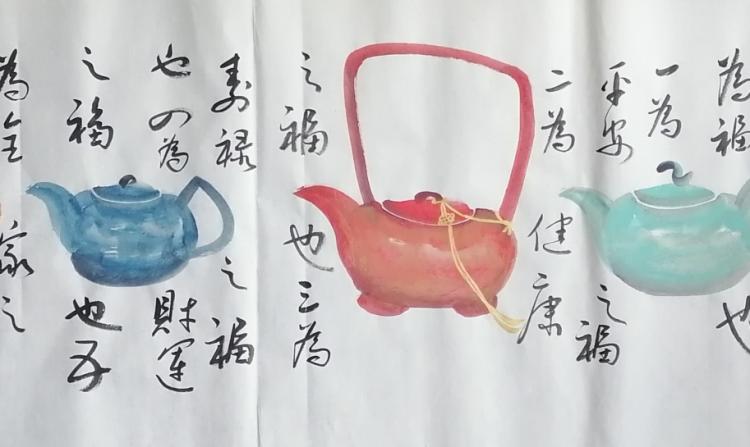 為福也
一為
平安之福
二為健康
之福也三為
寿禄之福
也四為財運
之福也五
為全家之